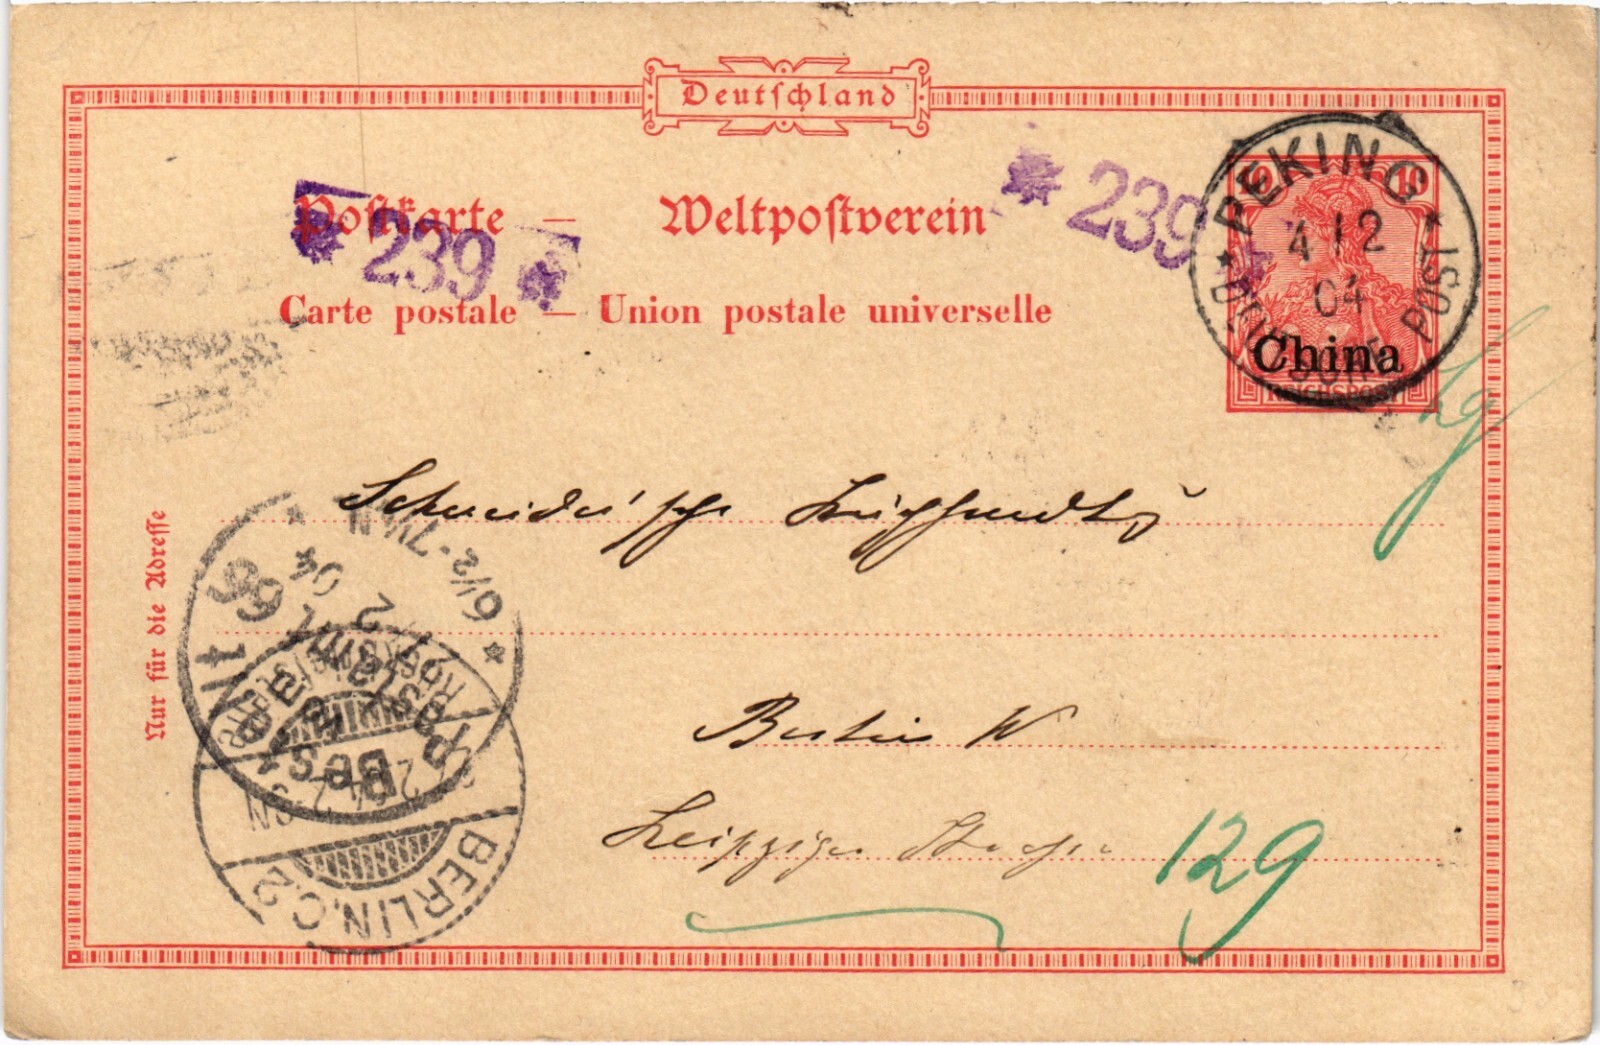 Deutschland
Postkarte — Weltpostverein
Carte postale — Union postale universelle
* 239 *
* 239 *
10 10
PEKING
4 12
04
DEUTSCHE POST
China
REICHSPOST
Nur für die Adresse
Schneider'sche
Berlin W
Leipziger Strasse 129
Bestellt
vom
Postamte 66
6 1/2 - 7 1/4 N
2
04
BERLIN, C. 2